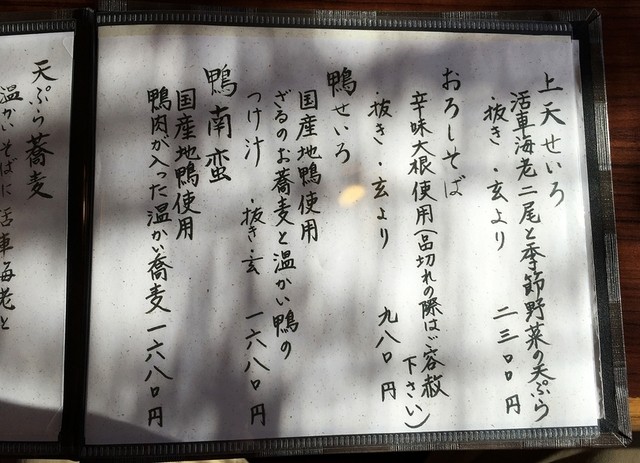 上天せいろ
活車海老二尾と季節野菜の天ぷら
・抜き・玄より 二三〇〇円
おろしそば
辛味大根使用(品切れの際はご容赦
下さい)
・抜き・玄より 九八〇円
鴨せいろ
国産地鴨使用
ざるのお蕎麦と温かい鴨の
つけ汁 ・抜き・玄 一六八〇円
鴨南蛮
国産地鴨使用
鴨肉が入った温かい蕎麦 一六八〇円
天ぷら蕎麦
温かいそばに活車海老と